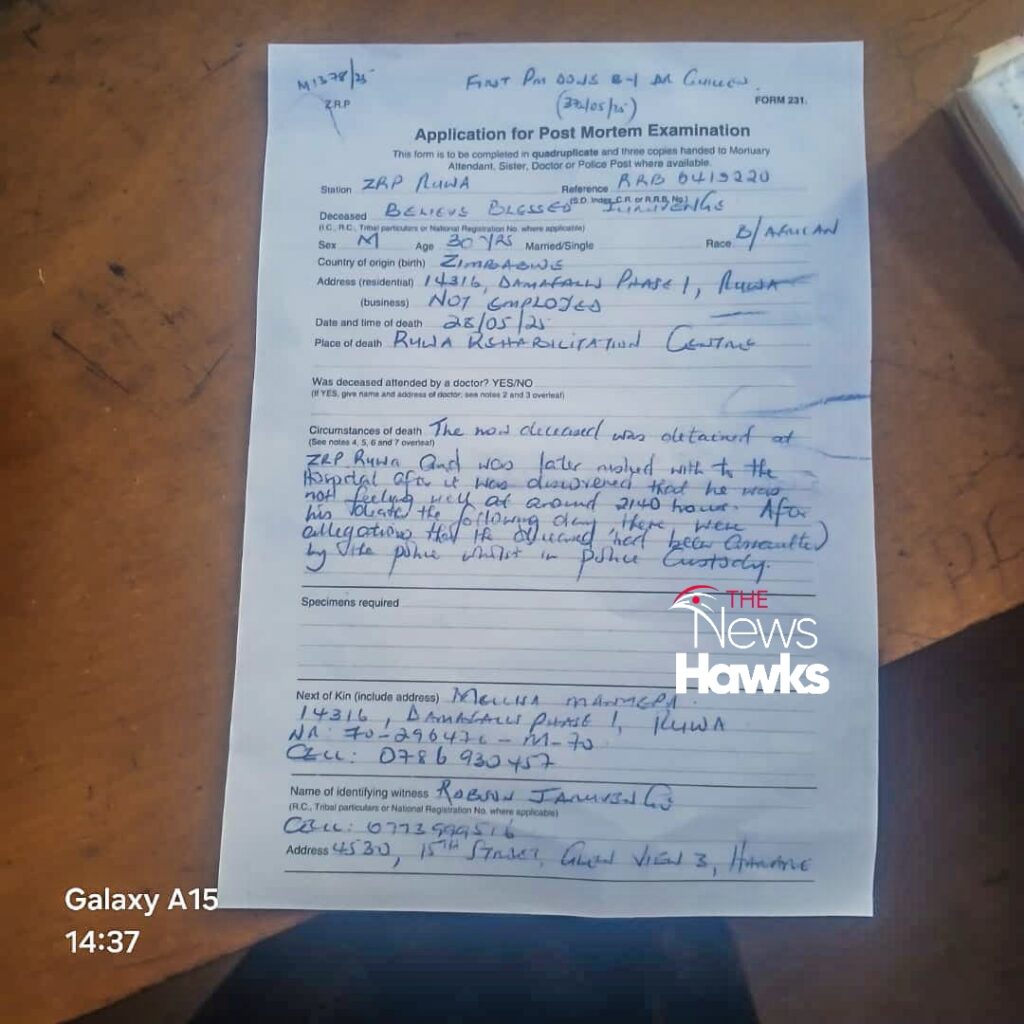 M1378/25
FIRST PM DONE BY DR
FORM 231.
Z.R.P
Application for Post Mortem Examination
This form is to be completed in quadruplicate and three copies handed to Mortuary
Attendant, Sister, Doctor or Police Post where available.
Station ZRP RUWA Reference RRB 6419220
(S.D. Index, C.R. or R.R.B. No.)
Deceased BELIEVE BLESSED
(I.C., R.C., Tribal particulars or National Registration No. where applicable)
Sex M Age 30 YRS Married/Single Race B/AFRICAN
Country of origin (birth) ZIMBABWE
Address (residential) 14316, DAMAFALLS PHASE 1, RUWA
(business) NOT EMPLOYED
Date and time of death 28/05/25
Place of death RUWA REHABILITATION CENTRE
Was deceased attended by a doctor? YES/NO
(If YES, give name and address of doctor; see notes 2 and 3 overleaf)
Circumstances of death The now deceased was detained at
(See notes 4, 5, 6 and 7 overleaf)
ZRP Ruwa and was later rushed with to the
Hospital after it was discovered that he was
not feeling well at around 2140 hours. After
his death the following day there were
allegations that the deceased had been assaulted
by the police whilst in police custody.
THE
News
Hawks
Specimens required
Next of Kin (include address)
14316, DAMAFALLS PHASE 1, RUWA
NR: 70-296471-M-70
CELL: 0786 930457
Name of identifying witness ROBSON
(R.C., Tribal particulars or National Registration No. where applicable)
CELL: 0773999516
Address 4530, 15TH STREET, GLEN VIEW 3, HARARE
Galaxy A15
14:37